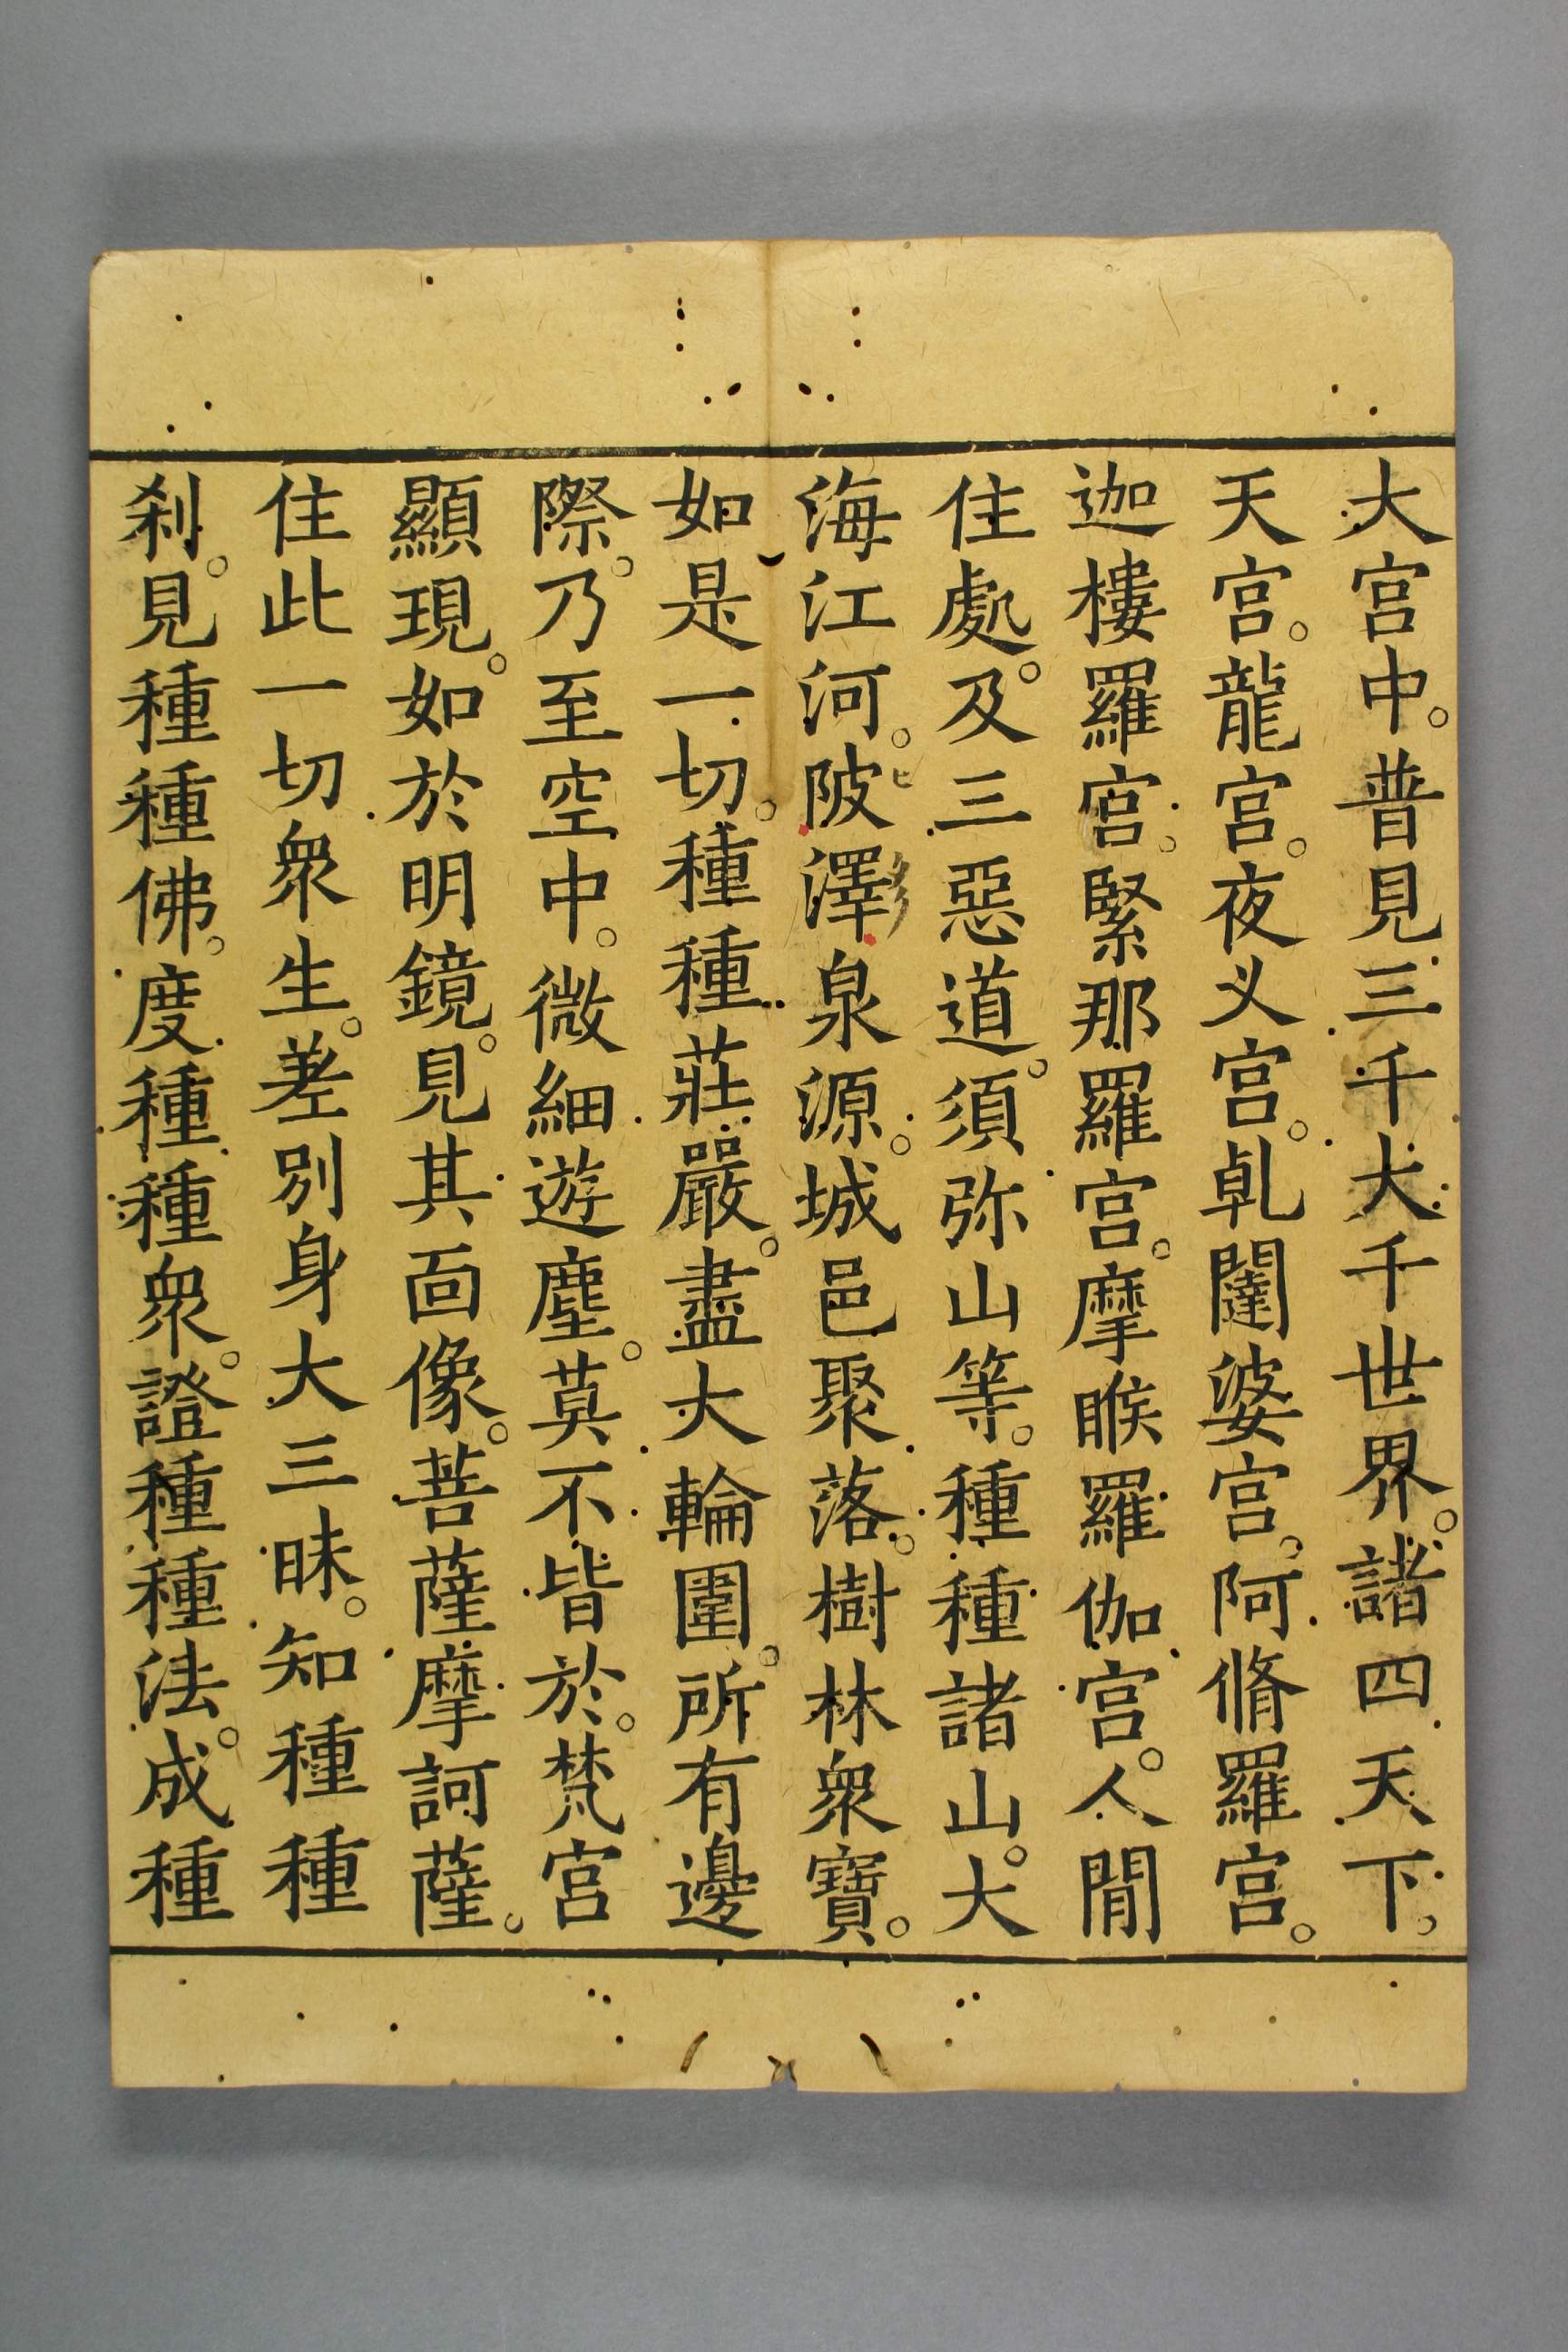 大宮中。普見三千大千世界。諸四天下。
天宮。龍宮。夜义宮。乹闥婆宮。阿脩羅宮。
迦樓羅宮。緊那羅宮。摩睺羅伽宮。人間
住處。及三惡道。須弥山等。種種諸山。大
海江河。陂澤泉源。城邑聚落。樹林衆寶。
如是一切。種種莊嚴。盡大輪圍。所有邊
際。乃至空中。微細遊塵。莫不皆於。梵宮
顯現。如於明鏡。見其面像。菩薩摩訶薩。
住此一切衆生。差別身大三昧。知種種
刹。見種種佛。度種種衆。證種種法。成種